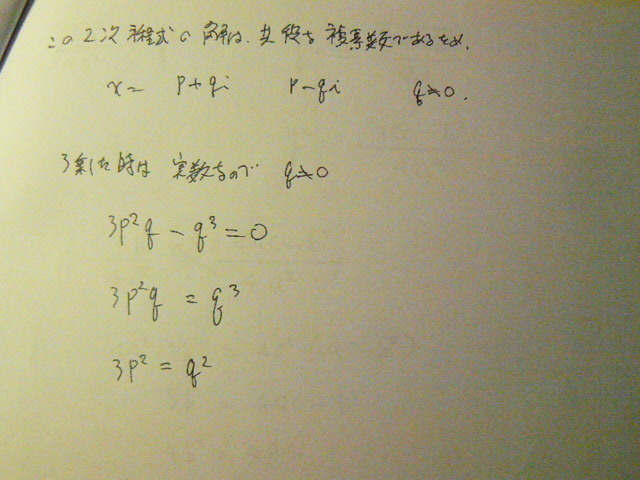 この2次方程式の解は、共役な複素数であるため、
x = p+qi p-qi q≠0.
3乗した時は 実数なので q≠0
3p²q - q³ = 0
3p²q = q³
3p² = q²